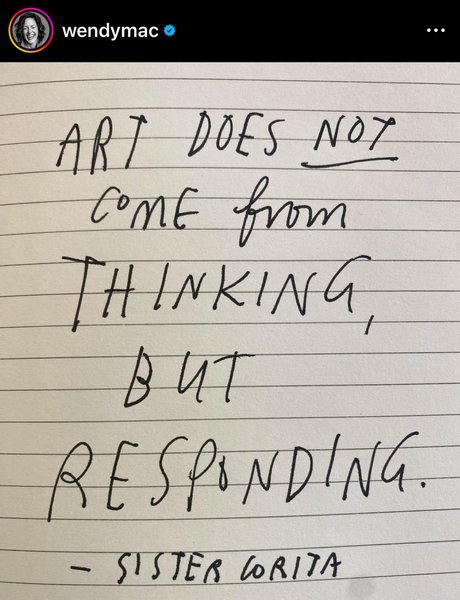 wendymac
ART DOES NOT
COME from
THINKING,
BUT
RESPONDING.
– SISTER CORITA